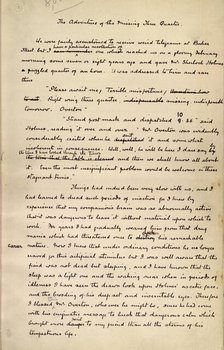 The Adventure of the Missing Three Quarter
We were fairly accustomed to receive weird telegrams at Baker
Street but I have a particular recollection of one which reached us on a gloomy February
morning some seven or eight years ago and gave Mr Sherlock Holmes
a puzzled quarter of an hour. It was addressed to him and ran
thus
"Please await me. Terrible misfortune,
Right wing three quarter missing indispensable
tomorrow. Overton
"Strand post mark and dispatched 10.36" said
Holmes, reading it over and over. "Mr Overton was evidently
considerably excited when he sent it and somewhat
incoherent in consequence. Well, well, he will be here I dare say by
the time I have looked through the Times and then we shall know all about
it. Even the most insignificant problem would be welcome in these
stagnant times."
Things had indeed been very slow with us, and I
had learned to dread such periods of inaction for I knew by
experience that my companion's brain was so abnormally active
that it was dangerous to leave it without material upon which to
work. For years I had gradually weaned him from that drug
mania which had threatened once to his remarkable
career
nature. Now I knew that under ordinary conditions he no longer
craved for this artificial stimulus but I was well aware that the
fiend was not dead but sleeping, and I have known that the
sleep was a light one and the waking near when in periods of
idleness I have seen the drawn look upon Holmes' ascetic face,
and the brooding of his deep set and inscrutable eyes. Therefore
I blessed Mr Overton, whoever he might be, since he had come
with his enigmatic message to break that dangerous calm which
brought more danger to my friend than all the storms of his
tempestuous life.